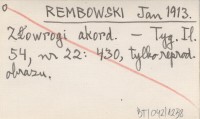 REMBOWSKI Jan 1913.
Złowrogi akord. — Tyg. Il.
54, nr 22: 430, tylko reprod.
obrazu.